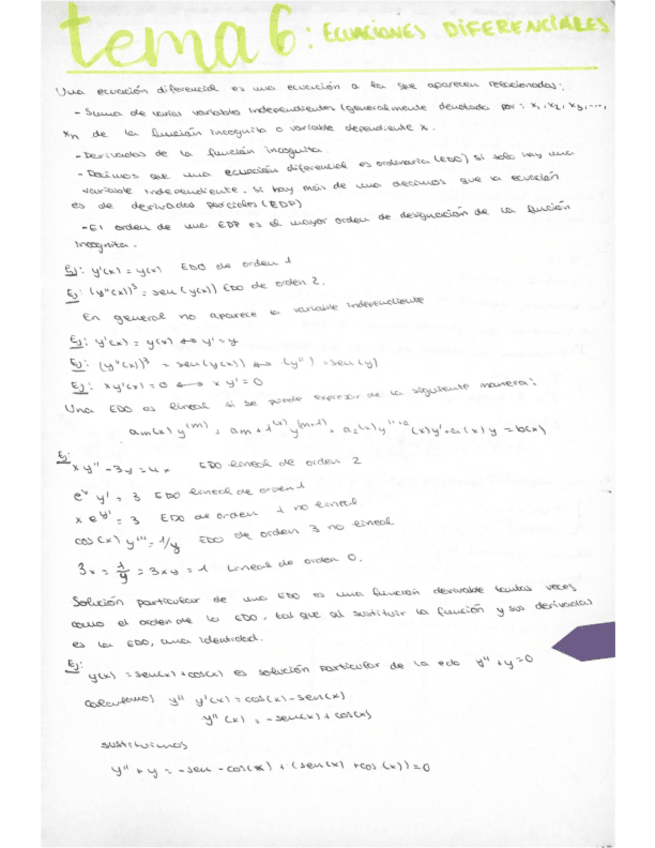 tema 6: ECUACIONES DIFERENCIALES
Una ecuación diferencial es una ecuación a la que aparecen relacionadas:
- Suma de varias variables independientes (generalmente denotada por: x₁, x₂, x₃, ...,
xn de la función incognita o variable dependiente x.
- Derivadas de la función incognita.
- Decimos que una ecuación diferencial es ordinaria (EDO) si solo hay una
variable independiente. Si hay más de una decimos que la ecuación
es de derivadas parciales (EDP)
- El orden de una EDP es el mayor orden de designación de la función
incognita.
Ej: y'(x) = y(x) EDO de orden 1
Ej: (y''(x))³ = sen(y(x)) EDO de orden 2.
En general no aparece la variable independiente
Ej: y'(x) = y(x) ↔ y' = y
Ej: (y''(x))³ = sen(y(x)) ↔ (y'') = sen(y)
Ej: xy'(x) = 0 ↔ x y' = 0
Una EDO es lineal si se puede expresar de la siguiente manera:
am(x) y(m), am+1(x) y(m-1), a₂(x) y'' + a (x)y' + a₁(x) y = b(x)
Ej:
xy'' - 3y = 4x EDO lineal de orden 2
eˣ y' = 3 EDO lineal de orden 1
x e^y' = 3 EDO de orden 1 no lineal
cos(x) y''' = 1/y EDO de orden 3 no lineal
3x = 1/y = 3xy = 1 Lineal de orden 0.
Solución particular de una EDO es una función derivable tantas veces
como el orden de la EDO, tal que al sustituir la función y sus derivadas
es la EDO, una identidad.
Ej:
y(x) = sen(x) + cos(x) es solución particular de la edo y'' + y = 0
calculamos y'' y'(x) = cos(x) - sen(x)
y''(x) = -sen(x) + cos(x)
sustituimos
y'' + y = -sen - cos(x) + (sen(x) + cos(x)) = 0